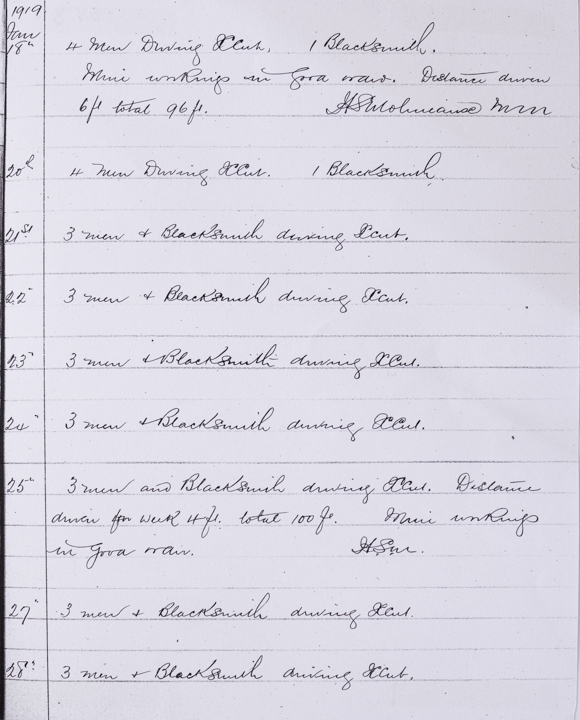 1919
Jan
18th 4 Men Driving XCut. 1 Blacksmith.
Mine workings in good order. Distance driven
6 ft total 96 ft. Mm
20th 4 Men Driving XCut. 1 Blacksmith.
21st 3 men & Blacksmith driving Xcut.
22" 3 men & Blacksmith driving Xcut.
23" 3 men & Blacksmith driving XCut.
24" 3 men & Blacksmith driving XCut.
25" 3 men and Blacksmith driving XCut. Distance
driven for week 4 ft. total 100 ft. Mine workings
in good order. HSM.
27" 3 men & Blacksmith driving XCut.
28" 3 men & Blacksmith driving XCut.